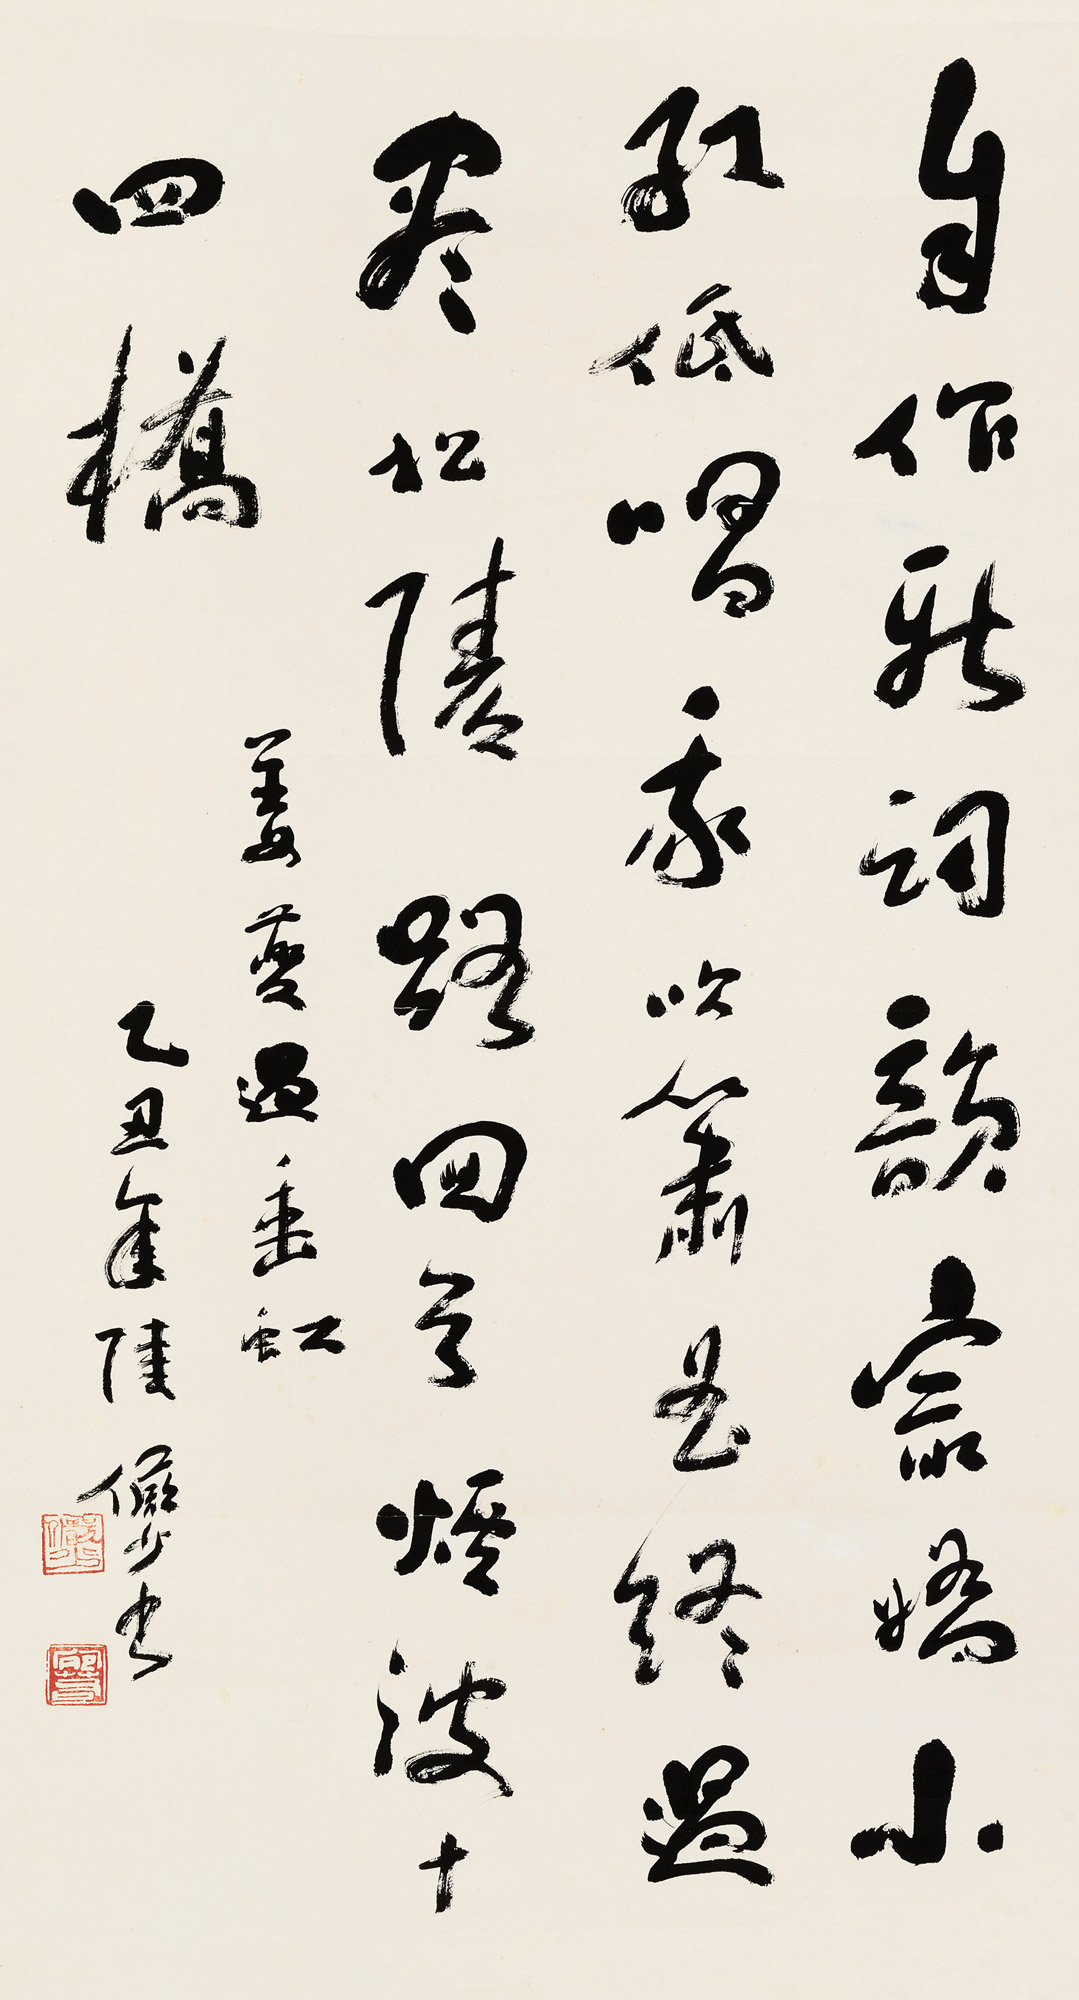 自作新詞韻㝡嬌小
紅低唱我吹簫曲終過
尽松陵路回首煙波十
四橋
姜夔過垂虹
乙丑年陸儼少書
儼少